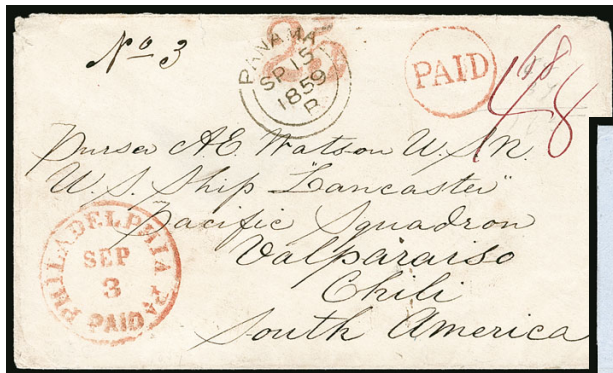 No 3
PANAMA
SP 15
1859
R
PAID
68
148
Purser A.E. Watson U.S.N.
U.S. Ship "Lancaster"
Pacific Squadron
Valparaiso
Chili
South America
PHILADELPHIA Pa
SEP
3
PAID